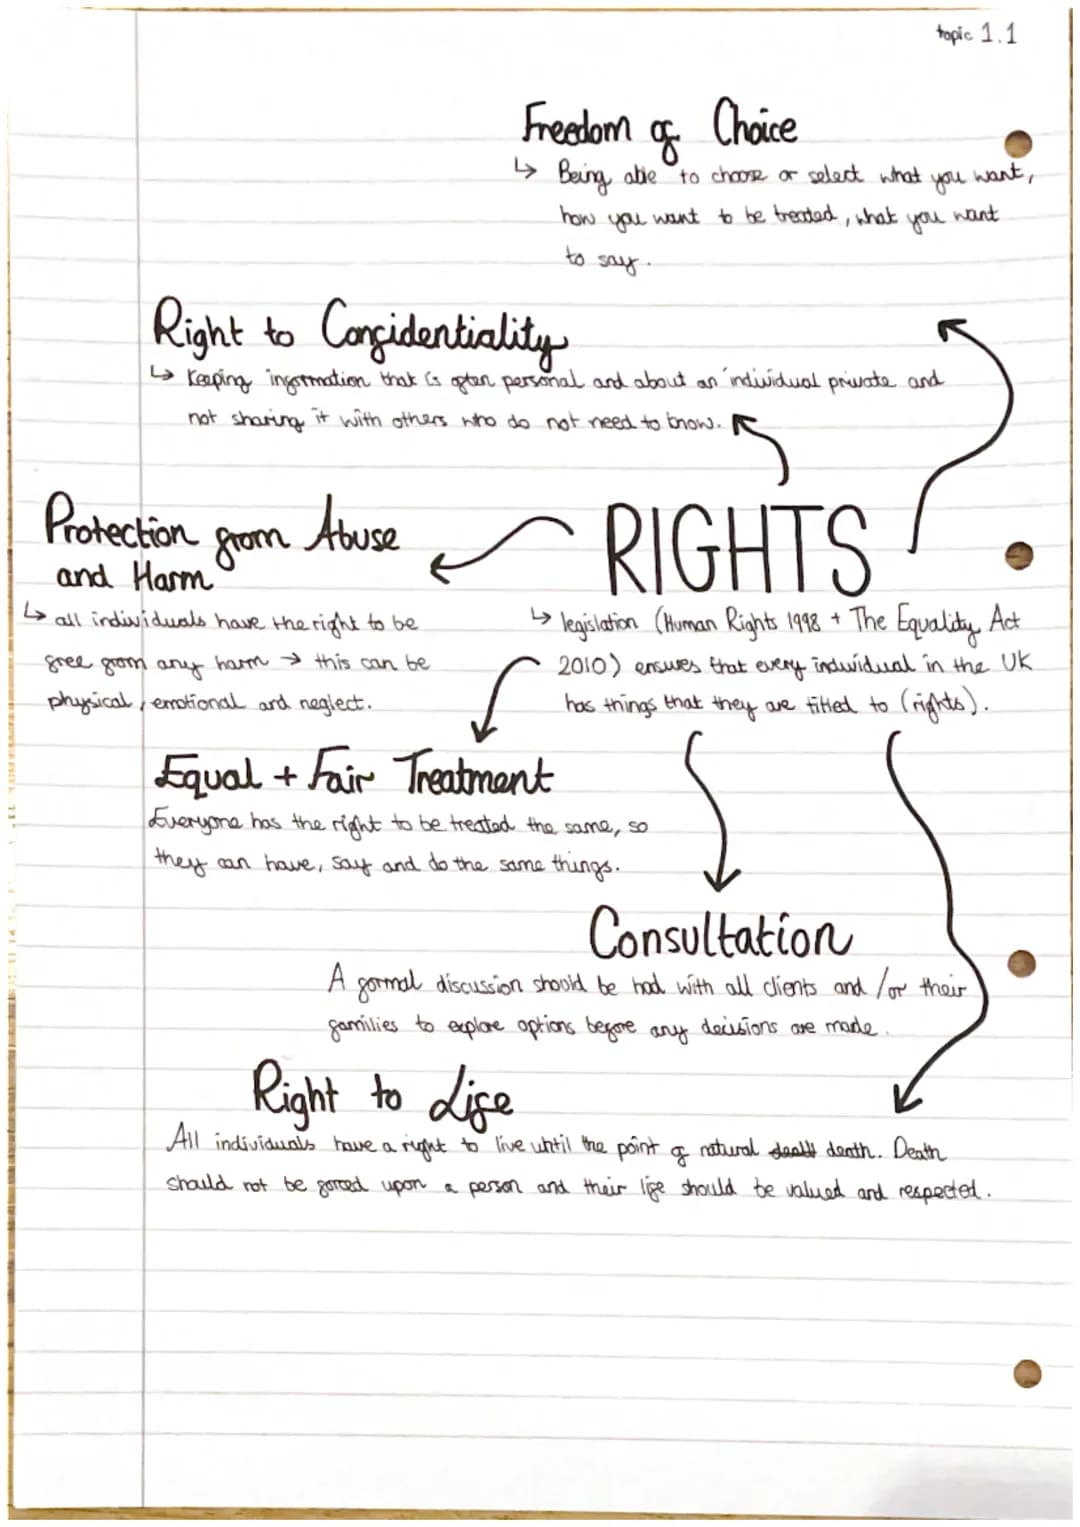 topic 1.1
Freedom of Choice
↳ Being able to choose or select what you want,
how you want to be treated, what you want
to say.
Right to Confidentiality
↳ Keeping information that is often personal and about an individual private and
not sharing it with others who do not need to know.
Protection from Abuse
and Harm
↳ all individuals have the right to be
free from any harm → this can be
physical, emotional and neglect.
RIGHTS
↳ legislation (Human Rights 1998 + The Equality Act
2010) ensures that every individual in the UK
has things that they are titled to (rights).
Equal + Fair Treatment
Everyone has the right to be treated the same, so
they can have, say and do the same things.
Consultation
A formal discussion should be had with all clients and /or their
families to explore options before any decisions are made.
Right to Life
All individuals have a right to live until the point of natural death. Death
should not be forced upon a person and their life should be valued and respected.